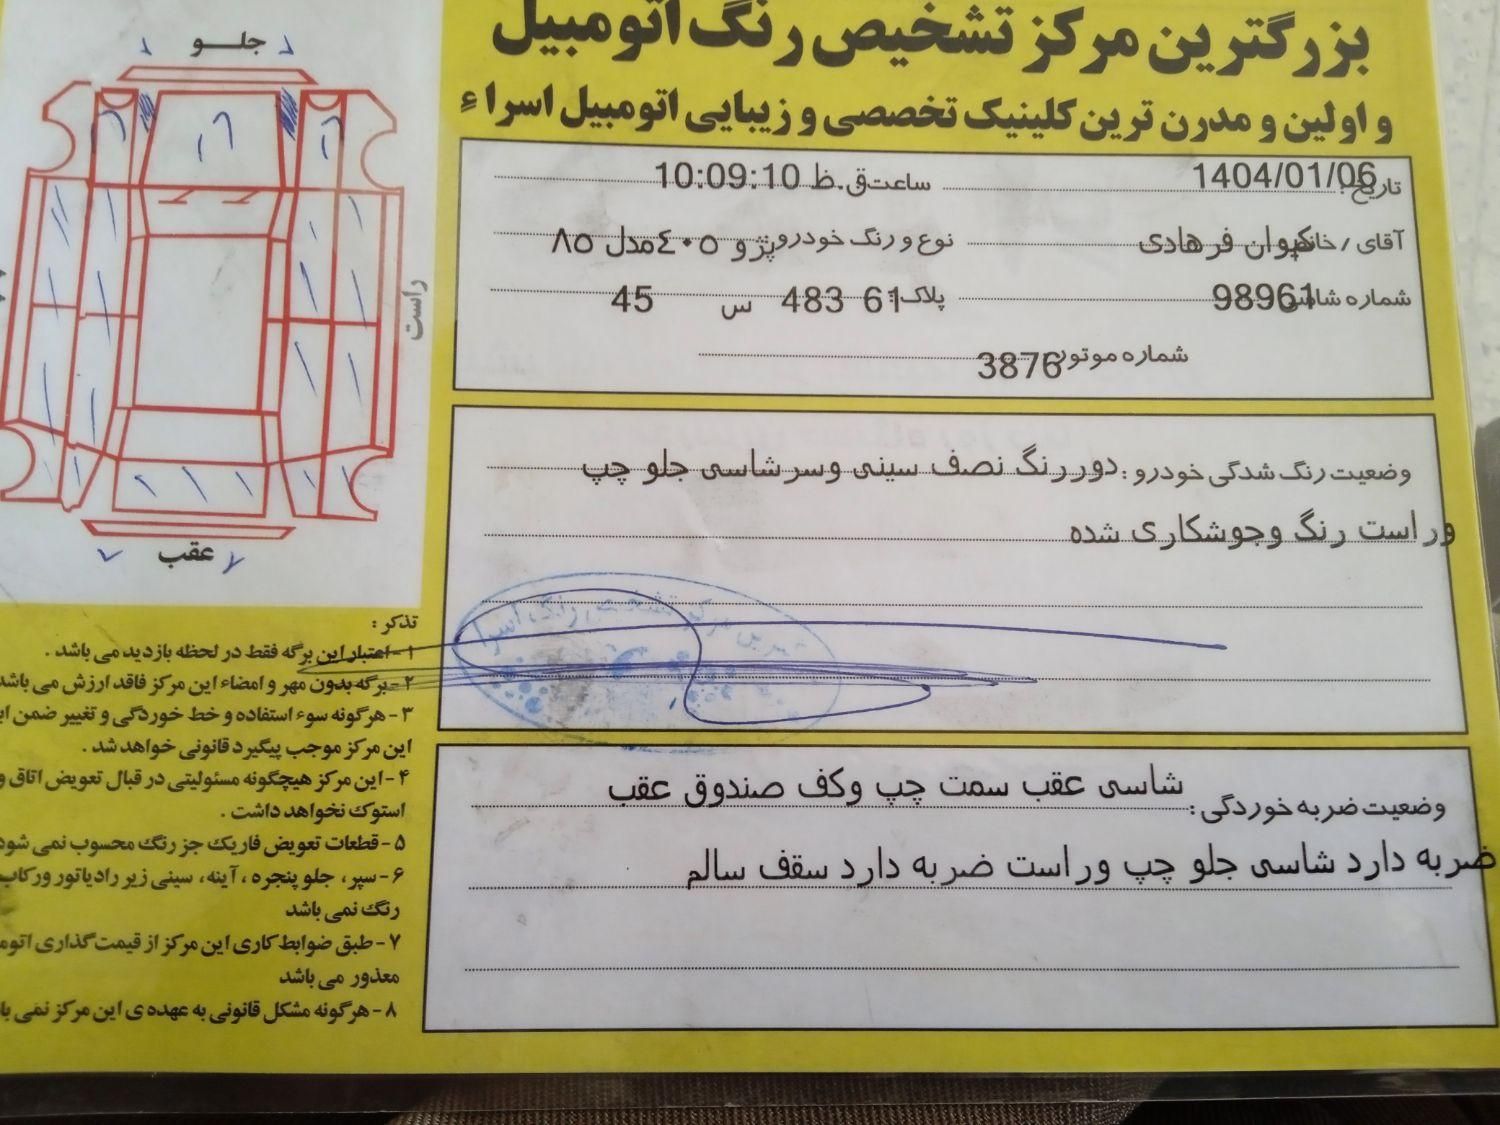 بزرگترین مرکز تشخیص رنگ اتومبیل
و اولین و مدرن ترین کلینیک تخصصی و زیبایی اتومبیل اسراء
تاریخ: 1404/01/06 ساعت ق.ظ 10:09:10
آقای / خانم کیوان فرهادی نوع و رنگ خودرو: پژو ۴۰۵ مدل ۸۵
شماره شاسی 98961 پلاک: 61 483 س 45
شماره موتور 3876
وضعیت رنگ شدگی خودرو: دوررنگ نصف سینی وسرشاسی جلو چپ
وراست رنگ وجوشکاری شده
وضعیت ضربه خوردگی: شاسی عقب سمت چپ وکف صندوق عقب
ضربه دارد شاسی جلو چپ وراست ضربه دارد سقف سالم
جلـو
راست
عقب
تذکر:
۱- اعتبار این برگه فقط در لحظه بازدید می باشد.
۲- برگه بدون مهر و امضاء این مرکز فاقد ارزش می باشد
۳- هرگونه سوء استفاده و خط خوردگی و تغییر ضمن
این مرکز موجب پیگیرد قانونی خواهد شد.
۴- این مرکز هیچگونه مسئولیتی در قبال تعویض اتاق و
استوک نخواهد داشت.
۵- قطعات تعویض فاریک جز رنگ محسوب نمی شود
۶- سپر، جلو پنجره، آینه، سینی زیر رادیاتور ورکاب
رنگ نمی باشد
۷- طبق ضوابط کاری این مرکز از قیمت گذاری
معذور می باشد
۸- هرگونه مشکل قانونی به عهده ی این مرکز نمی